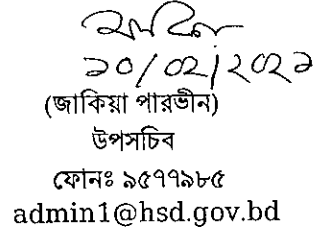 ১০/০২/২০২১
(জাকিয়া পারভীন)
উপসচিব
ফোনঃ ৯৫৭৭৯৮৫
admin1@hsd.gov.bd